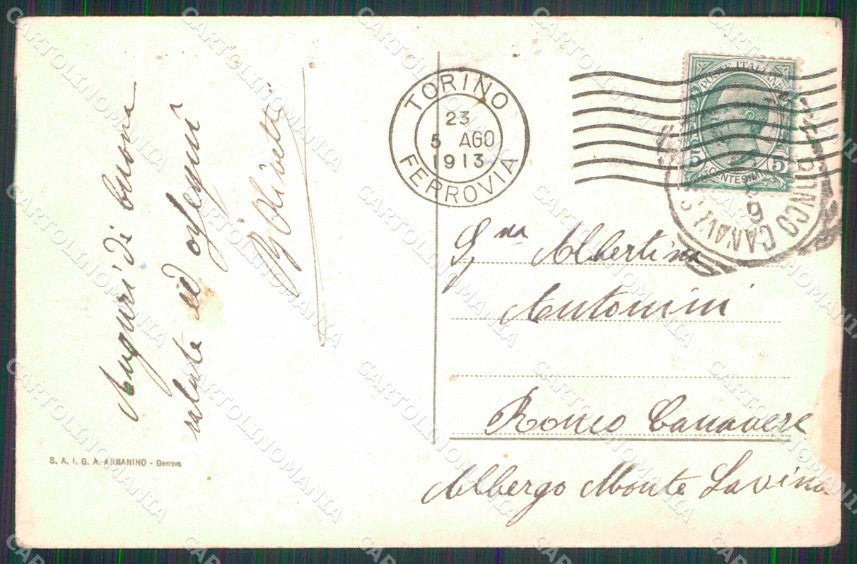 Auguri di buona
salute ed ossequi
Olivetti
S. A. I. G. A. ARMANINO - Genova
TORINO
23
5 AGO
1913
FERROVIA
POSTE ITALIANE
5 5
CENTESIMI
RONCO CANAVESE
Sg.na Albertina
Antonini
Ronco Canavese
Albergo Monte Lavina
CARTOLINOMANIA